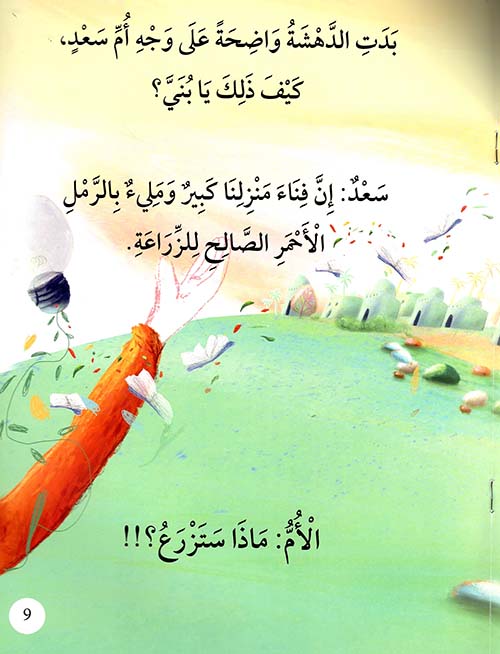 بَدَتِ الدَّهْشَةُ وَاضِحَةً عَلَى وَجْهِ أُمِّ سَعْدٍ،
كَيْفَ ذَلِكَ يَا بُنَيَّ؟
سَعْدٌ: إِنَّ فِنَاءَ مَنْزِلِنَا كَبِيرٌ وَمَلِيءٌ بِالرَّمْلِ
الْأَحْمَرِ الصَّالِحِ لِلزِّرَاعَةِ.
الْأُمُّ: مَاذَا سَتَزْرَعُ؟!!
9